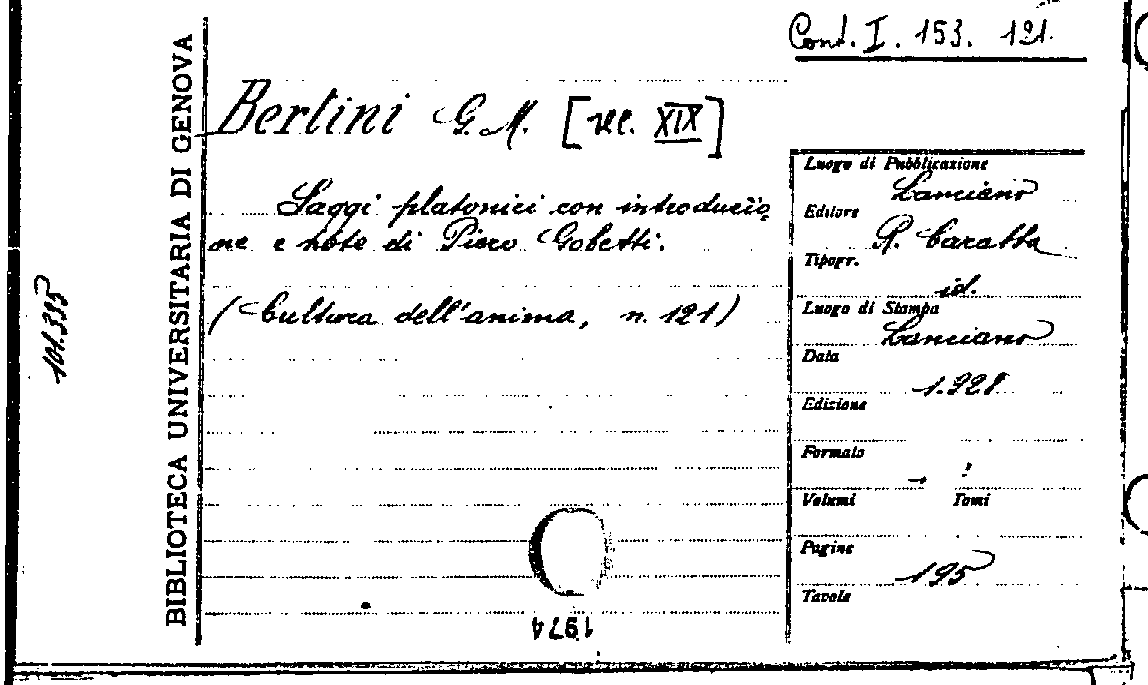 Conf. I. 153. 121.
BIBLIOTECA UNIVERSITARIA DI GENOVA
101.335
Bertini G. M. [sec. XIX]
Saggi platonici con introduzio
ne e note di Piero Gobetti.
(Cultura dell'anima, n. 121)
Luogo di Pubblicazione
Lanciano
Editore
R. Carabba
Tipogr.
id.
Luogo di Stampa
Lanciano
Data
1.928
Edizione
Formato
Volumi Tomi
Pagine
195
Tavole
1974